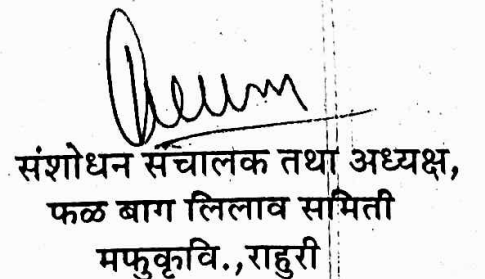 संशोधन संचालक तथा अध्यक्ष,
फळ बाग लिलाव समिती
मफुकृवि.,राहुरी